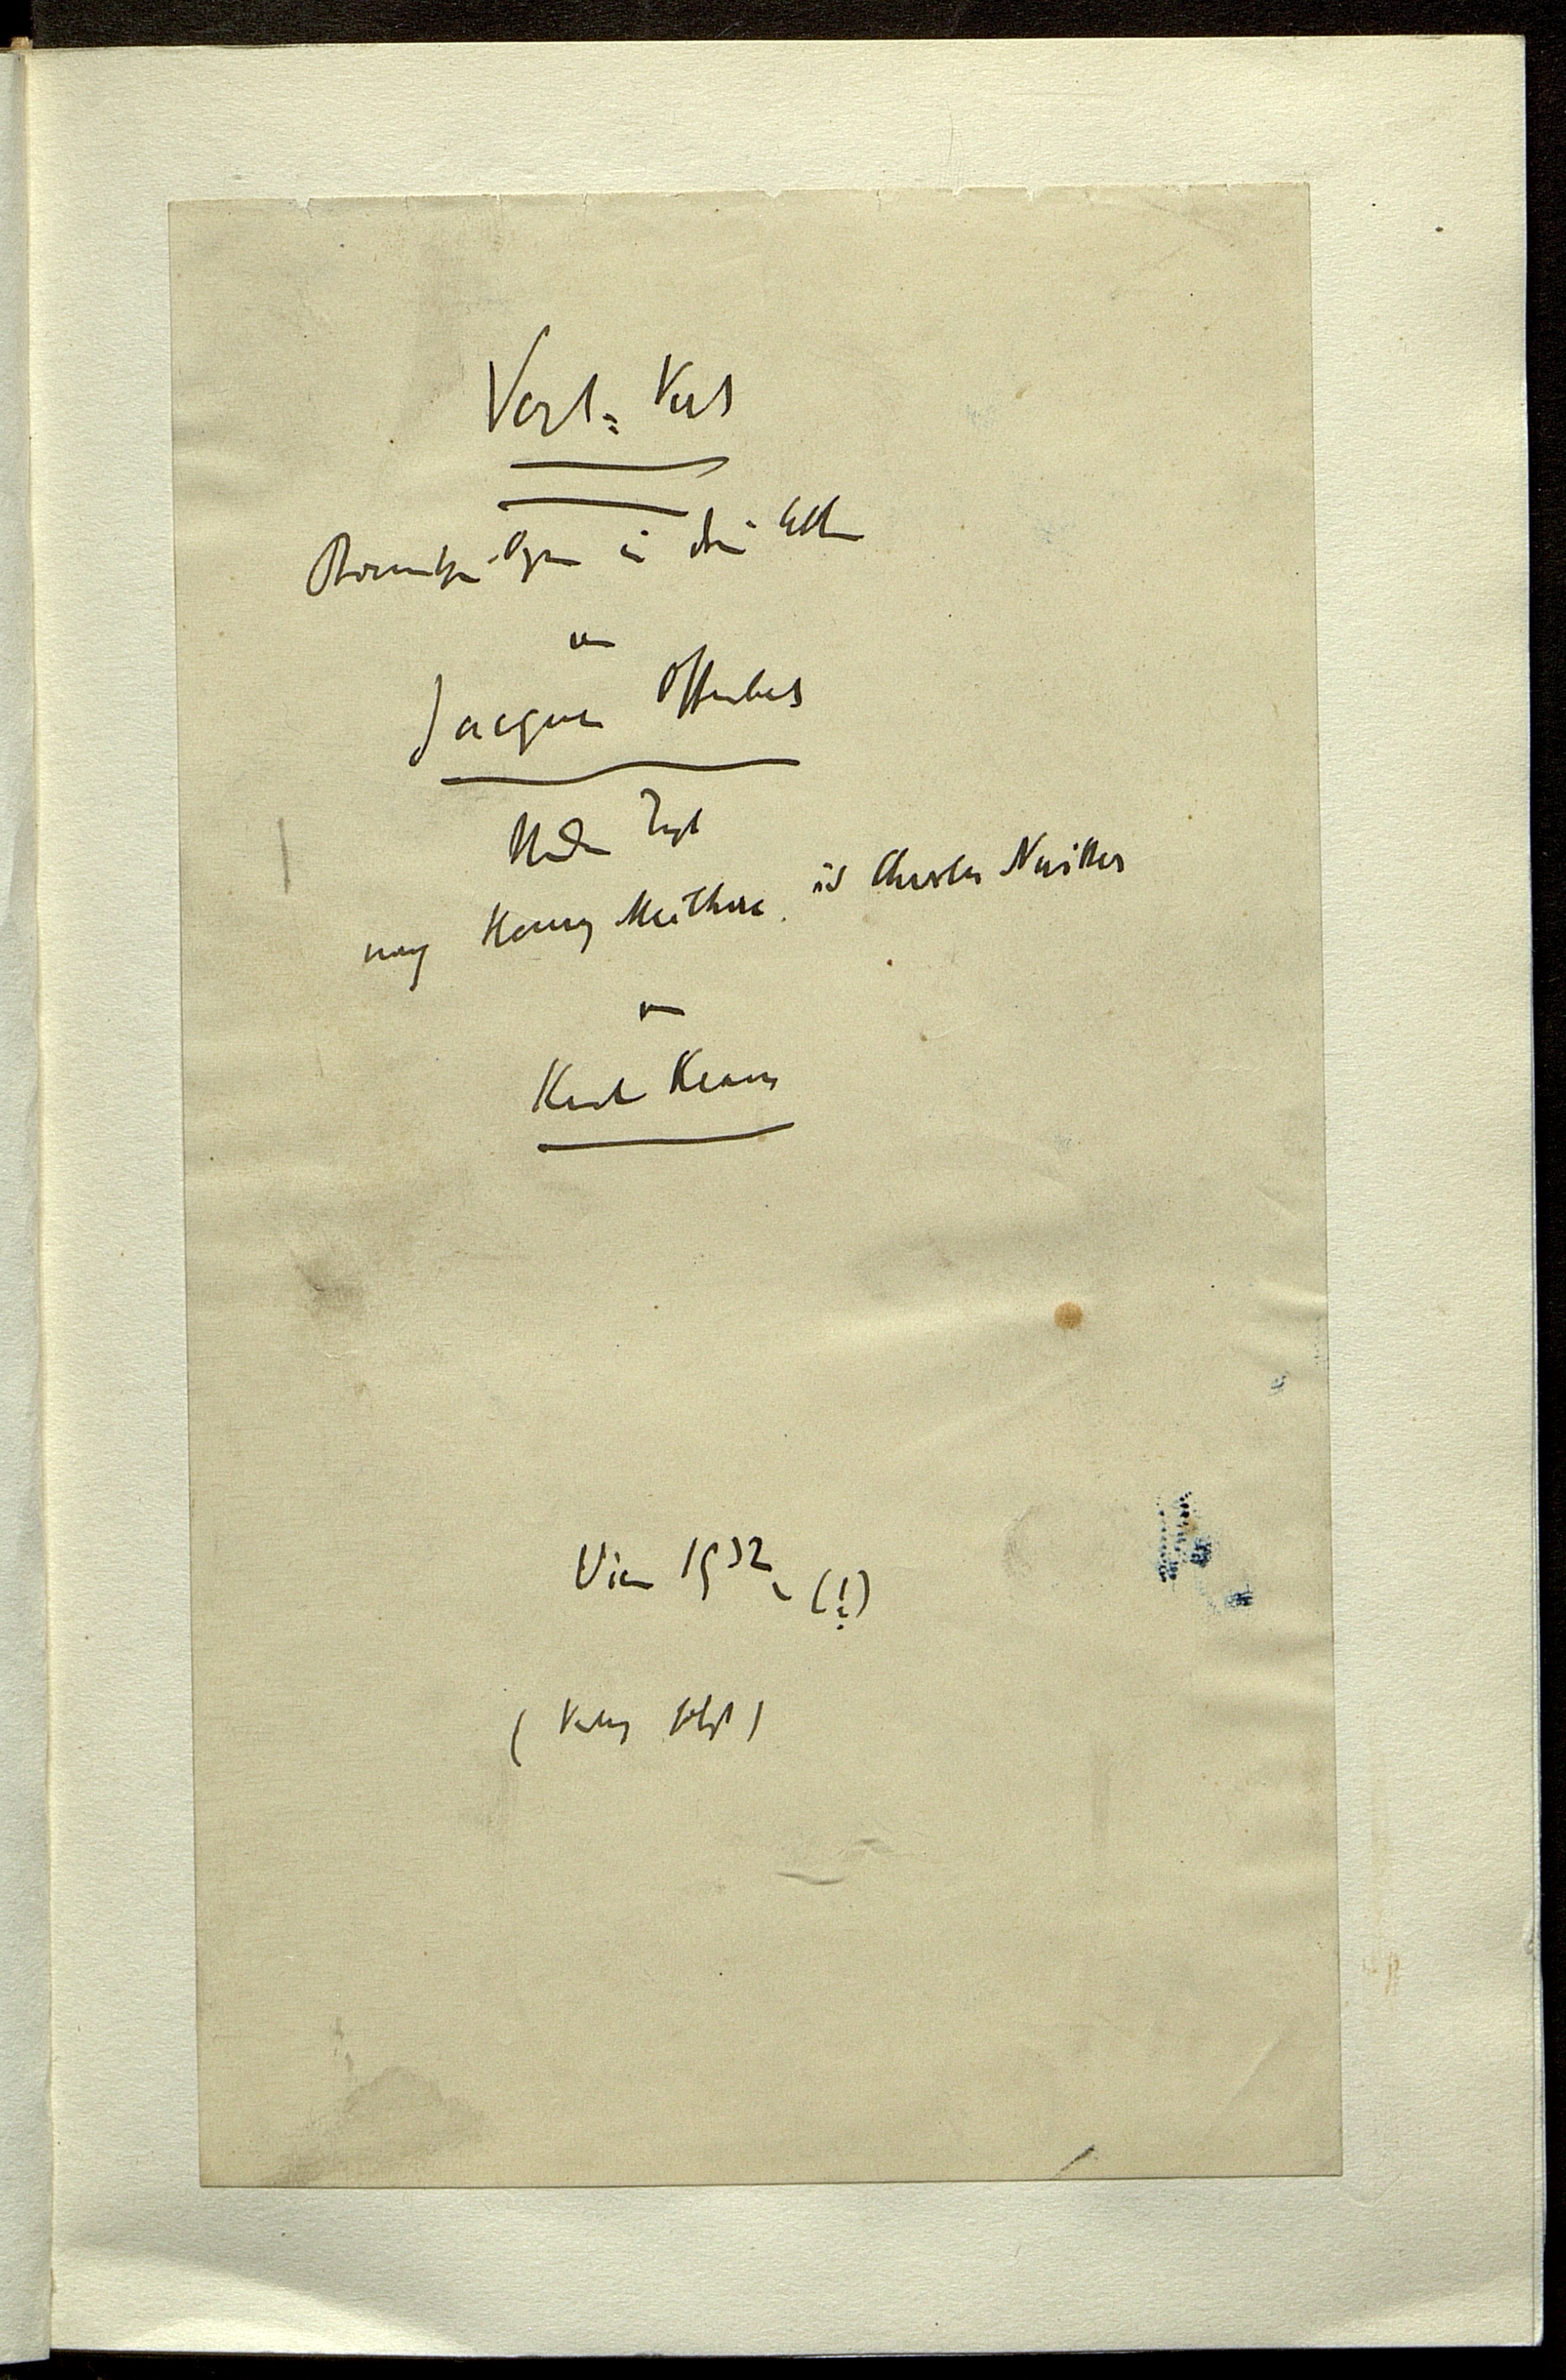 Vert-Vert
Komische Oper in drei Akten
von
Jacques Offenbach
Neuer Text
nach Henry Meilhac und Charles Nuitter
von
Karl Kraus
Wien 1932, (!)
(Verlag folgt)